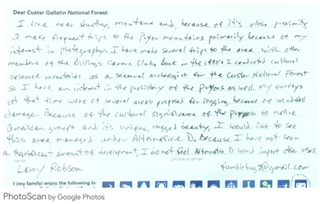 Dear Custer Gallatin National Forest:
I live near Huntley, Montana and, because of it's close proximity,
I make frequent trips to the Pryor mountains primarily because of my
interest in photography. I have made several trips to the area with other
members of the Billings Camera Club. Back in the 1980's I conducted cultural
resource inventories as a seasonal archeologist for the Custer National Forest
so I have an interest in the prehistory of the Pryors as well. My surveys
at that time were at several areas proposed for logging because of
damage. Because of the cultural significance of the Pryors to native
American groups and its unique, rugged beauty, I would like to see
this area managed under Alternative D. Because I have not seen
a significant amount of development, I do not feel Alternative D would impact other uses.
Larry Robson
name
phone or email
@gmail.com
I (my family) enjoy the following in
PhotoScan by Google Photos